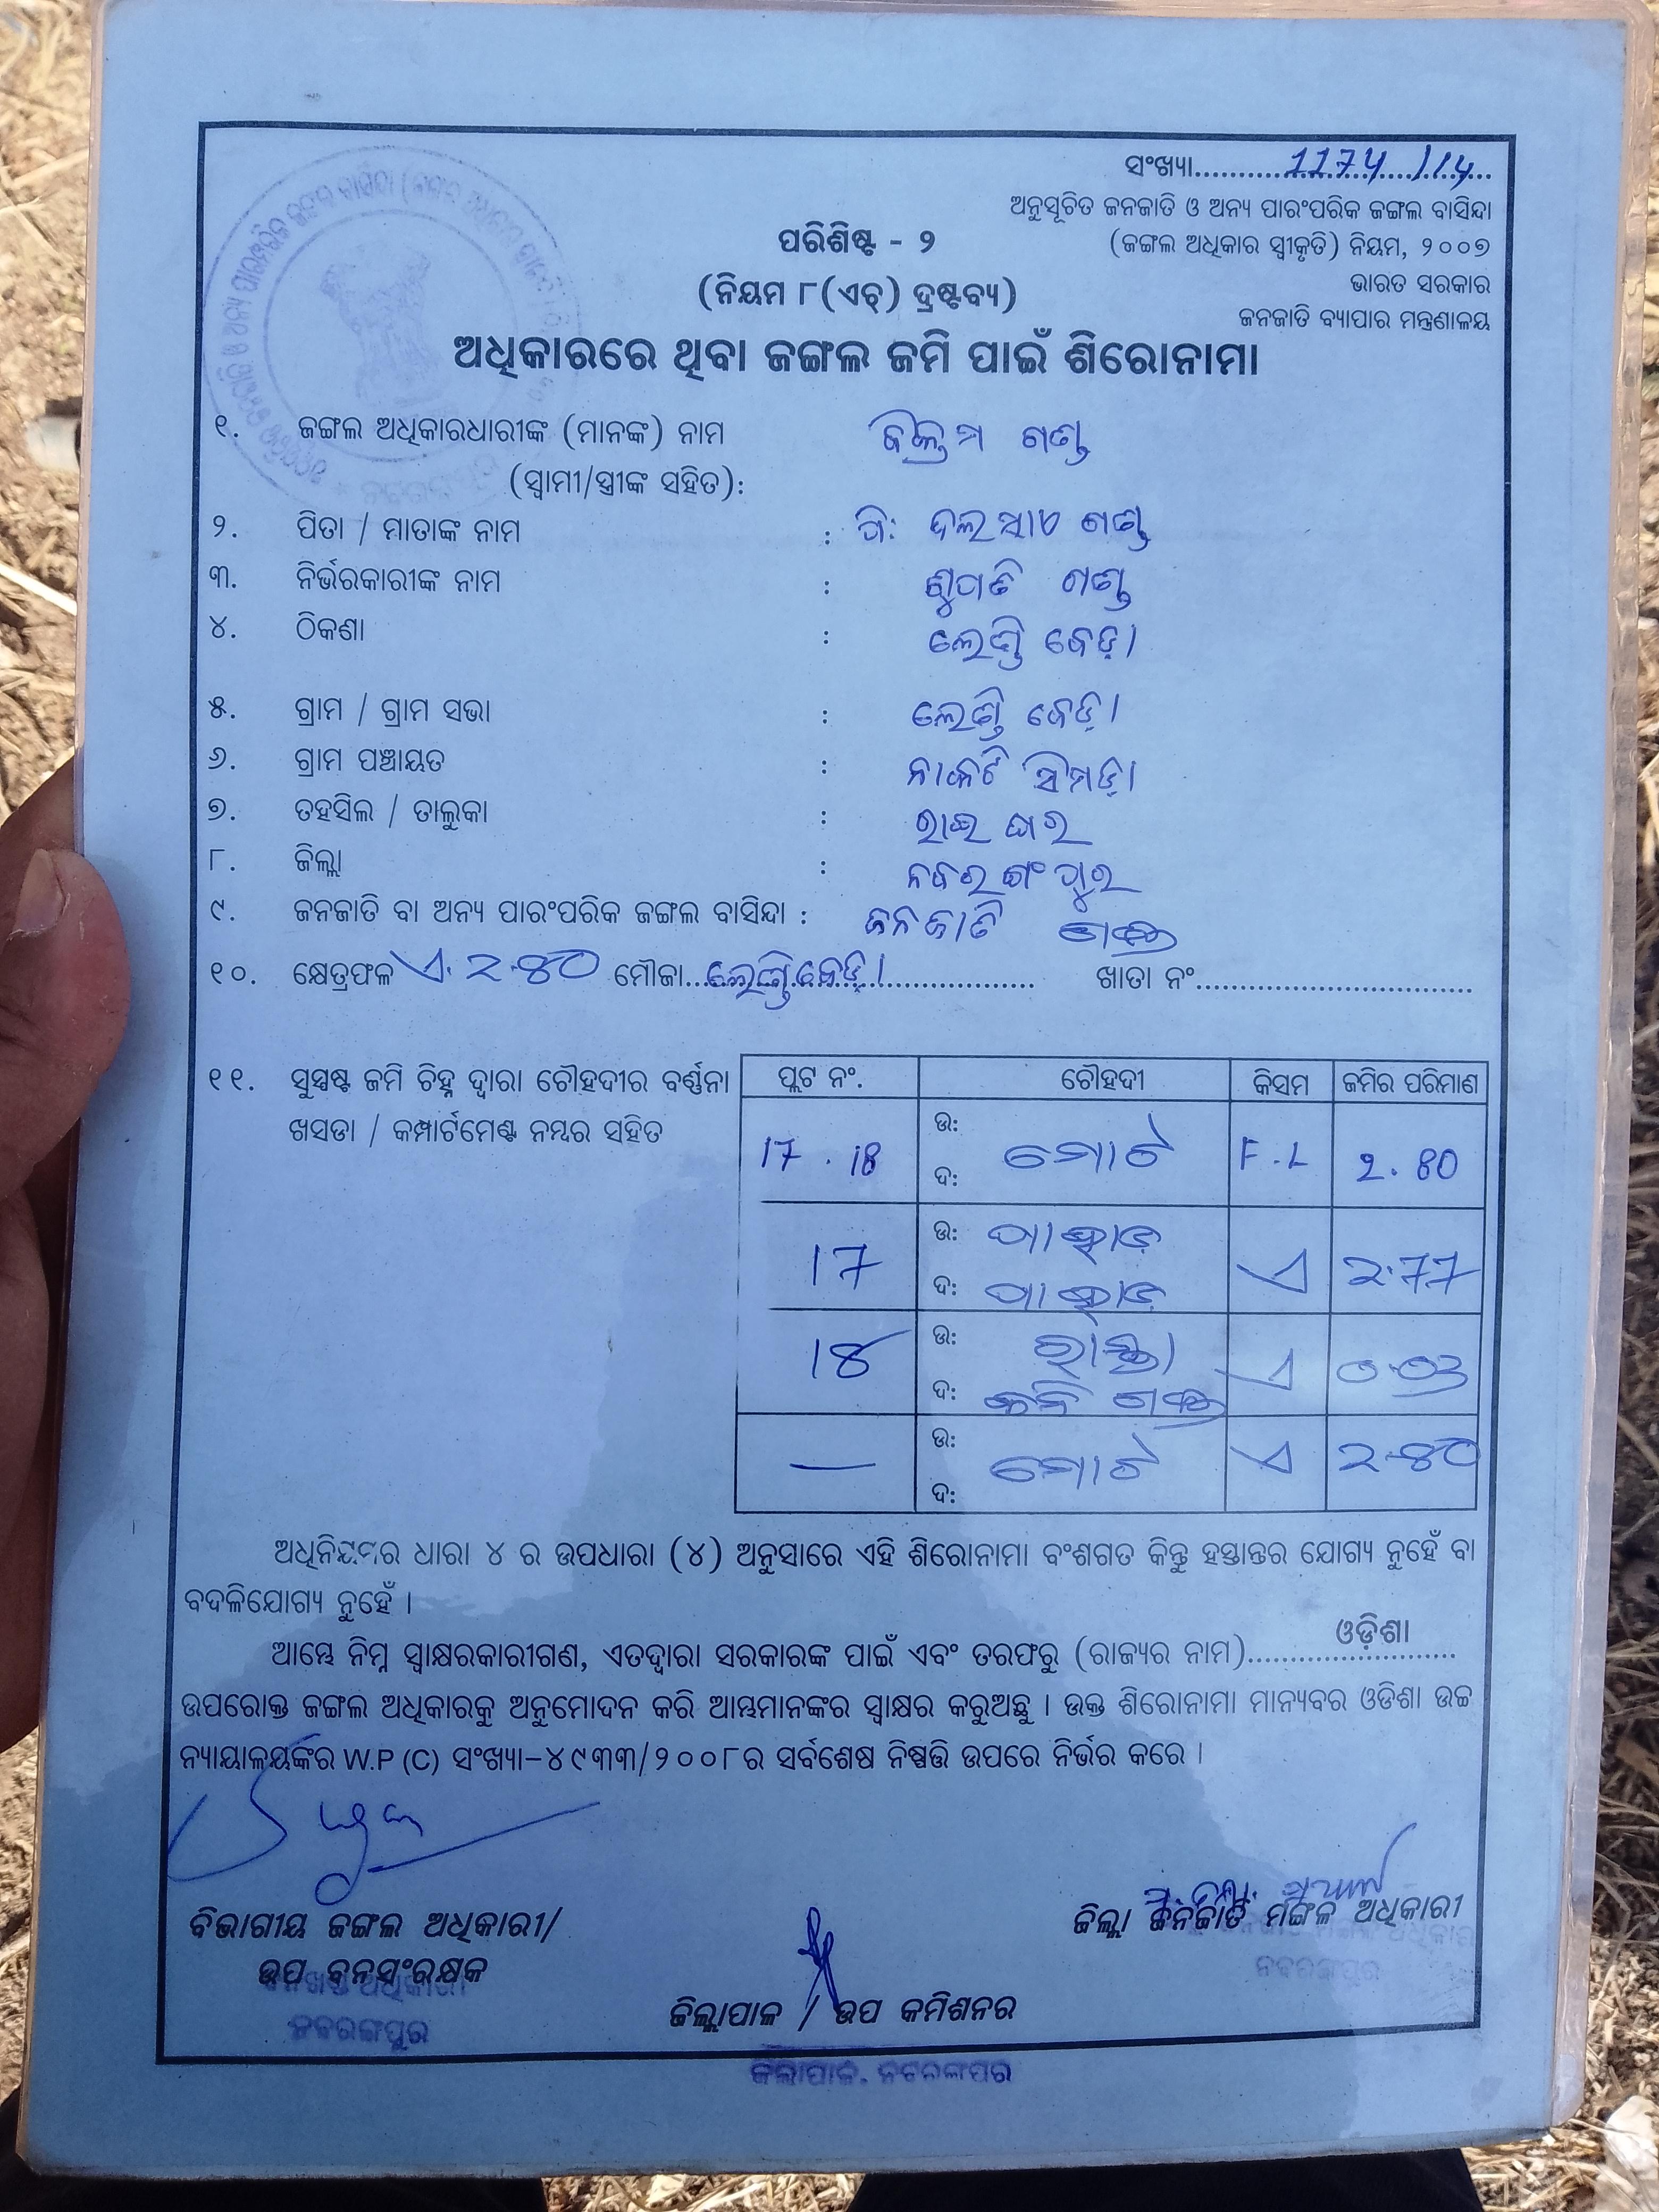 ସଂଖ୍ୟା.......1174/14
ଅନୁସୂଚିତ ଜନଜାତି ଓ ଅନ୍ୟ ପାରଂପରିକ ଜଙ୍ଗଲ ବାସିନ୍ଦା
(ଜଙ୍ଗଲ ଅଧିକାର ସ୍ୱୀକୃତି) ନିୟମ, ୨୦୦୭
ଭାରତ ସରକାର
ଜନଜାତି ବ୍ୟାପାର ମନ୍ତ୍ରଣାଳୟ
ପରିଶିଷ୍ଟ - ୨
(ନିୟମ ୮(ଏଚ୍) ଦ୍ରଷ୍ଟବ୍ୟ)
ଅଧିକାରରେ ଥିବା ଜଙ୍ଗଲ ଜମି ପାଇଁ ଶିରୋନାମା
୧. ଜଙ୍ଗଲ ଅଧିକାରଧାରୀଙ୍କ (ମାନଙ୍କ) ନାମ ବିକ୍ରମ ଗଣ୍ଡ
(ସ୍ୱାମୀ/ସ୍ତ୍ରୀଙ୍କ ସହିତ):
୨. ପିତା / ମାତାଙ୍କ ନାମ : ପି: ଦଲସାଏ ଗଣ୍ଡ
୩. ନିର୍ଭରକାରୀଙ୍କ ନାମ : ଗଣ୍ଡ
୪. ଠିକଣା : ଲେଣ୍ଡି ବେଡ଼ା
୫. ଗ୍ରାମ / ଗ୍ରାମ ସଭା : ଲେଣ୍ଡି ବେଡ଼ା
୬. ଗ୍ରାମ ପଞ୍ଚାୟତ : ନାକଟି ସିମଡ଼ା
୭. ତହସିଲ / ତାଲୁକା : ରାଇ ଘର
୮. ଜିଲ୍ଲା : ନବରଙ୍ଗପୁର
୯. ଜନଜାତି ବା ଅନ୍ୟ ପାରଂପରିକ ଜଙ୍ଗଲ ବାସିନ୍ଦା : ଜନଜାତି ଗଣ୍ଡ
୧୦. କ୍ଷେତ୍ରଫଳ ଏ. ୨.୫୦ ମୌଜା...ଲେଣ୍ଡିବେଡ଼ା....... ଖାତା ନଂ................................
୧୧. ସୁସ୍ପଷ୍ଟ ଜମି ଚିହ୍ନ ଦ୍ୱାରା ଚୌହଦୀର ବର୍ଣ୍ଣନା
ଖସଡା / କମ୍ପାର୍ଟମେଣ୍ଟ ନମ୍ବର ସହିତ
ପ୍ଲଟ ନଂ. ଚୌହଦୀ କିସମ ଜମିର ପରିମାଣ
17 . 18 ଉ: ମୋଟ F.L 2.80
ଦ:
17 ଉ: ପାହାଡ଼ ଏ ୨.77
ଦ: ପାହାଡ଼
18 ଉ: ରାସ୍ତା ଏ ୦.୦୩
ଦ: ଗଣ୍ଡ
— ଉ: ମୋଟ ଏ ୨.୫୦
ଦ:
ଅଧିନିୟମର ଧାରା ୪ ର ଉପଧାରା (୪) ଅନୁସାରେ ଏହି ଶିରୋନାମା ବଂଶଗତ କିନ୍ତୁ ହସ୍ତାନ୍ତର ଯୋଗ୍ୟ ନୁହେଁ ବା
ବଦଳିଯୋଗ୍ୟ ନୁହେଁ ।
ଆମ୍ଭେ ନିମ୍ନ ସ୍ୱାକ୍ଷରକାରୀଗଣ, ଏତଦ୍ଦ୍ୱାରା ସରକାରଙ୍କ ପାଇଁ ଏବଂ ତରଫରୁ (ରାଜ୍ୟର ନାମ)....ଓଡ଼ିଶା....
ଉପରୋକ୍ତ ଜଙ୍ଗଲ ଅଧିକାରକୁ ଅନୁମୋଦନ କରି ଆମ୍ଭମାନଙ୍କର ସ୍ୱାକ୍ଷର କରୁଅଛୁ । ଉକ୍ତ ଶିରୋନାମା ମାନ୍ୟବର ଓଡିଶା ଉଚ୍ଚ
ନ୍ୟାୟାଳୟଙ୍କର W.P (C) ସଂଖ୍ୟା-୪୯୩୩/୨୦୦୮ର ସର୍ବଶେଷ ନିଷ୍ପତ୍ତି ଉପରେ ନିର୍ଭର କରେ ।
ବିଭାଗୀୟ ଜଙ୍ଗଲ ଅଧିକାରୀ/
ଉପ ବନସଂରକ୍ଷକ
ବନଖଣ୍ଡ ଅଧିକାରୀ
ନବରଙ୍ଗପୁର
ଜିଲ୍ଲାପାଳ / ଉପ କମିଶନର
ଜିଲ୍ଲାପାଳ, ନବରଙ୍ଗପୁର
ଜିଲ୍ଲା ଜନଜାତି ମଙ୍ଗଳ ଅଧିକାରୀ
ନବରଙ୍ଗପୁର